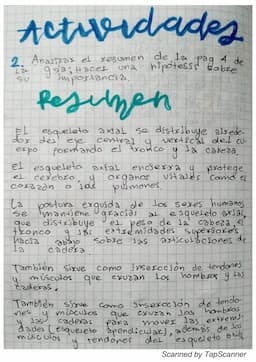 Actividades
2. Analizar el resumen de la pag 4 de
la guia; Hacer una hipotesis sobre
su importancia.
Resumen
El esqueleto axial se distribuye alrede-
dor del eje central y vertical del cu-
erpo formando el tronco y la cabeza
el esqueleto axial encierra y protege
el cerebro, y organos vitales como el
corazón o los pulmones.
La postura erguida de los seres humanos
se mantiene gracias al esqueleto axial,
que distribuye el peso de la cabeza, el
tronco y las extremidades superiores
hacia abajo sobre las articulaciones de
la cadera
También sirve como inserción de tendones
y músculos que cruzan los hombros y las
caderas.
También sirve como inserción de tendo-
nes y músculos que cruzan los hombros
y las caderas para mover las extremi-
dades (esqueleto apendicular), además de los
músculos y tendones del esqueleto
Scanned by TapScanner